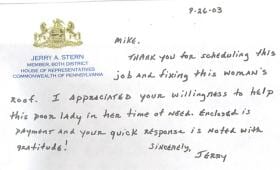 9-26-03
JERRY A STERN
MEMBER, 80TH DISTRICT
HOUSE OF REPRESENTATIVES
COMMONWEALTH OF PENNSYLVANIA
MIKE.
THANK YOU FOR SCHEDULING THIS
JOB AND FIXING THIS WOMAN'S
ROOF. I APPRECIATED YOUR WILLINGNESS TO HELP
THIS POOR LADY IN HER TIME OF NEED. ENCLOSED IS
PAYMENT AND YOUR QUICK RESPONSE IS NOTED WITH
GRATITUDE!
SINCERELY,
JERRY